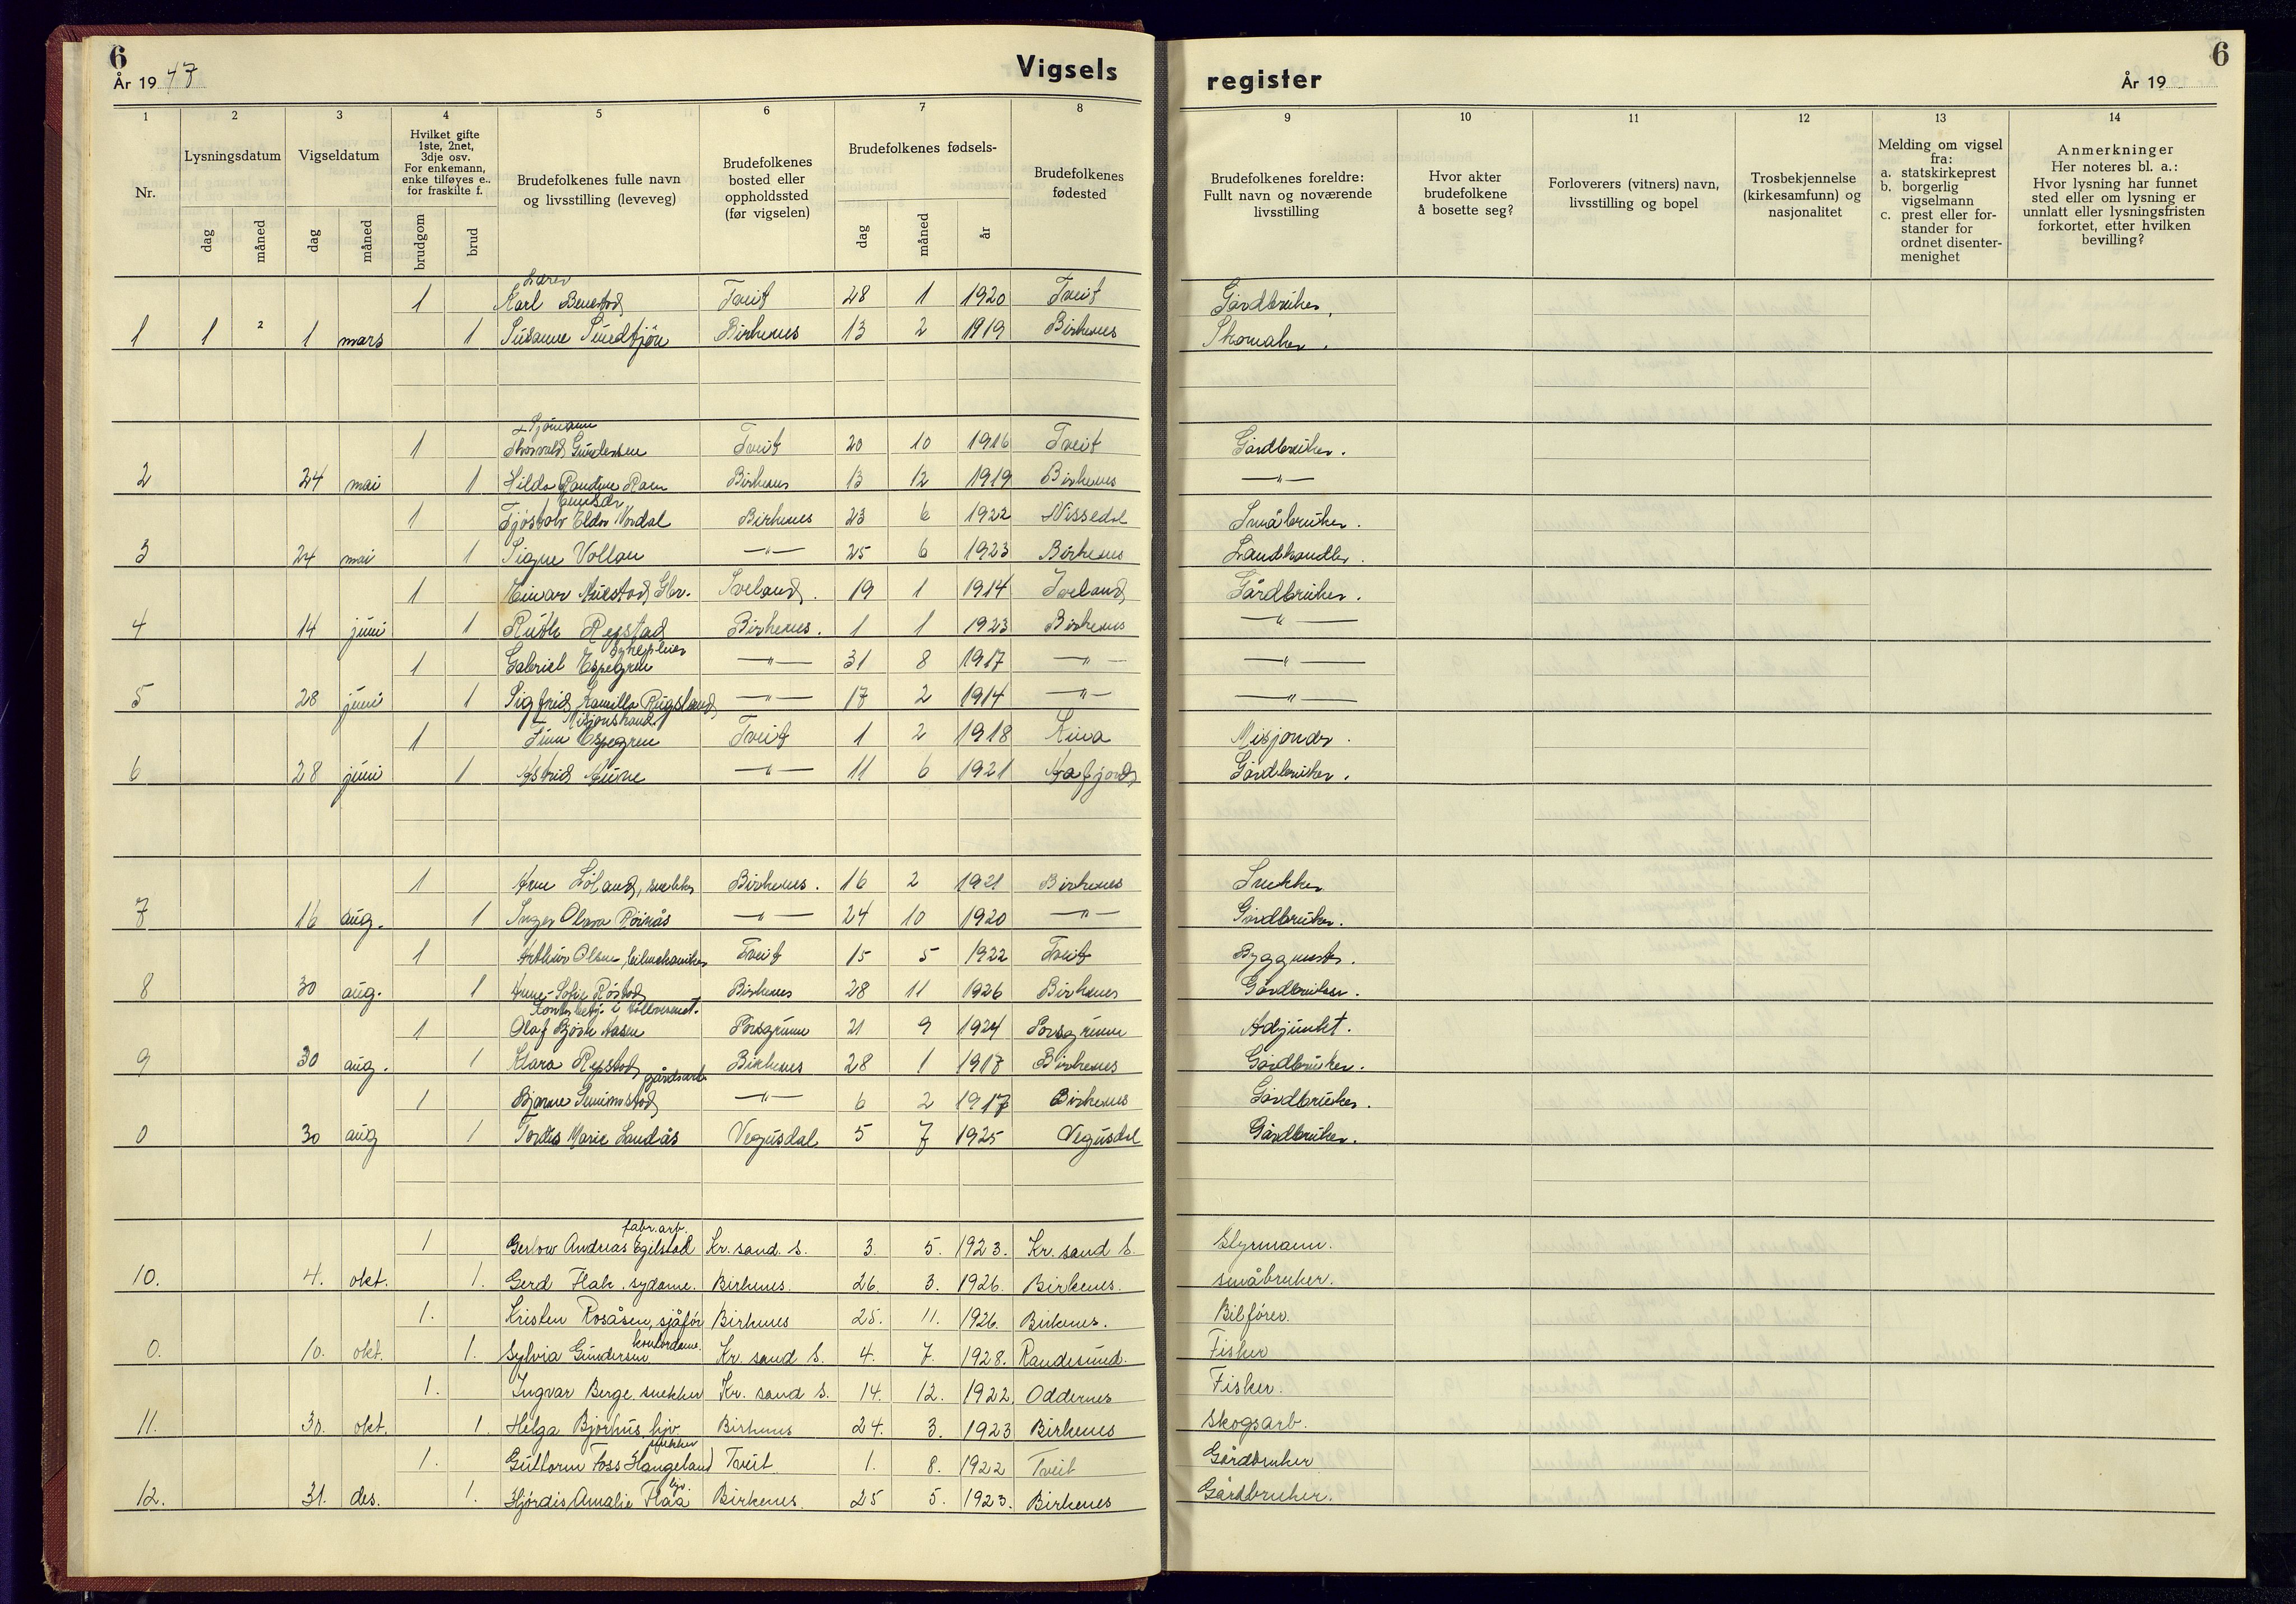 6
År 19 47
Vigsels
register
År 19
6
1 2 3 4 5 6 7 8 9 10 11 12 13 14
Nr.
Lysningsdatum
dag måned
Vigseldatum
dag måned
Hvilket gifte
1ste, 2net,
3dje osv.
For enkemann,
enke tilføyes e..
for fraskilte f.
brudgom brud
Brudefolkenes fulle navn
og livsstilling (leveveg)
Brudefolkenes
bosted eller
oppholdssted
(før vigselen)
Brudefolkenes fødsels-
dag måned år
Brudefolkenes
fødested
Brudefolkenes foreldre:
Fullt navn og noværende
livsstilling
Hvor akter
brudefolkene
å bosette seg?
Forloverers (vitners) navn,
livsstilling og bopel
Trosbekjennelse
(kirkesamfunn) og
nasjonalitet
Melding om vigsel
fra:
a. statskirkeprest
b. borgerlig
vigselmann
c. prest eller for-
stander for
ordnet disenter-
menighet
Anmerkninger
Her noteres bl. a.:
Hvor lysning har funnet
sted eller om lysning er
unnlatt eller lysningsfristen
forkortet, etter hvilken
bevilling?
Lærer
1 Karl Benestad Tveit 28 1 1920 Tveit Gårdbruker.
1 1 2 1 mars 1 Susanne Sundtjøn Birkenes 13 2 1919 Birkenes Skomaker.
Sjømann
1 Thorvald Gundersen Tveit 20 10 1916 Tveit Gårdbruker.
2 24 mai 1 Hilda Randine Raen Birkenes 13 12 1919 Birkenes —"—
1 Tjøstolv Eldor Nordal Birkenes 23 6 1922 Nissedal Småbruker.
3 24 mai 1 Signe Vollan —"— 25 6 1923 Birkenes Landhandler.
1 Einar Aurstad Gbr. Iveland. 19 1 1914 Iveland Gårdbruker.
4 14 juni 1 Ruth Repstad Birkenes. 1 1 1923 Birkenes —"—
1 Gabriel Espegren —"— 31 8 1917 —"— —"—
5 28 juni 1 Sigfrid Kamilla Rugsland —"— 17 2 1914 —"— —"—
Misjonskand.
1 Finn Espegren Tveit 1 2 1918 Kina Misjonær.
6 28 juni 1 Astrid Aune —"— 11 6 1921 Åfjord Gårdbruker.
1 Arne Löland, snekker Birkenes. 16 2 1921 Birkenes Snekker
7 16 aug. 1 Inger Olava Röinås —"— 24 10 1920 —"— Gårdbruker.
1 Arthur Olsen, bilmekaniker Tveit 15 5 1922 Tveit Byggmester.
8 30 aug. 1 Anne-Sofie Röstad Birkenes 28 11 1926 Birkenes Gårdbruker.
1 Olaf Bjørk Aasen Porsgrunn 21 9 1924 Porsgrunn Adjunkt.
9 30 aug. 1 Klara Repstad Birkenes 28 1 1917 Birkenes Gårdbruker.
gårdsarb.
1 Bjarne Senumstad —"— 6 2 1917 Birkenes Gårdbruker.
0 30 aug 1 Tordis Marie Landås Vegusdal 5 7 1925 Vegusdal Gårdbruker.
fabr.arb.
1 Gerlow Andreas Egilstad Kr. sand. S. 3. 5. 1923. Kr. sand S. Styrmann.
10. 4. okt. 1. Gerd Flak. sydame. Birkenes. 26. 3. 1926. Birkenes. småbruker.
1. Kristen Rosåsen, sjåfør Birkenes 25. 11. 1926. Birkenes. Bilfører.
kontordame.
0. 10. okt. 1. Sylvia Gundersen Kr. sand S. 4. 7. 1928. Randesund. Fisker
1. Ingvar Berge. snekker Kr. sand S. 14. 12. 1922. Oddernes Fisker.
11. 30. okt. 1. Helga Bjorhus. hjv. Birkenes 24. 3. 1923 Birkenes Skogsarb.
snekker
1. Guttorm Foss Haugeland Tveit. 1. 8. 1922 Tveit Gårdbruker
hjv.
12. 31. des. 1. Hjördis Amalie Flaa Birkenes. 25 5. 1923. Birkenes Gårdbruker.